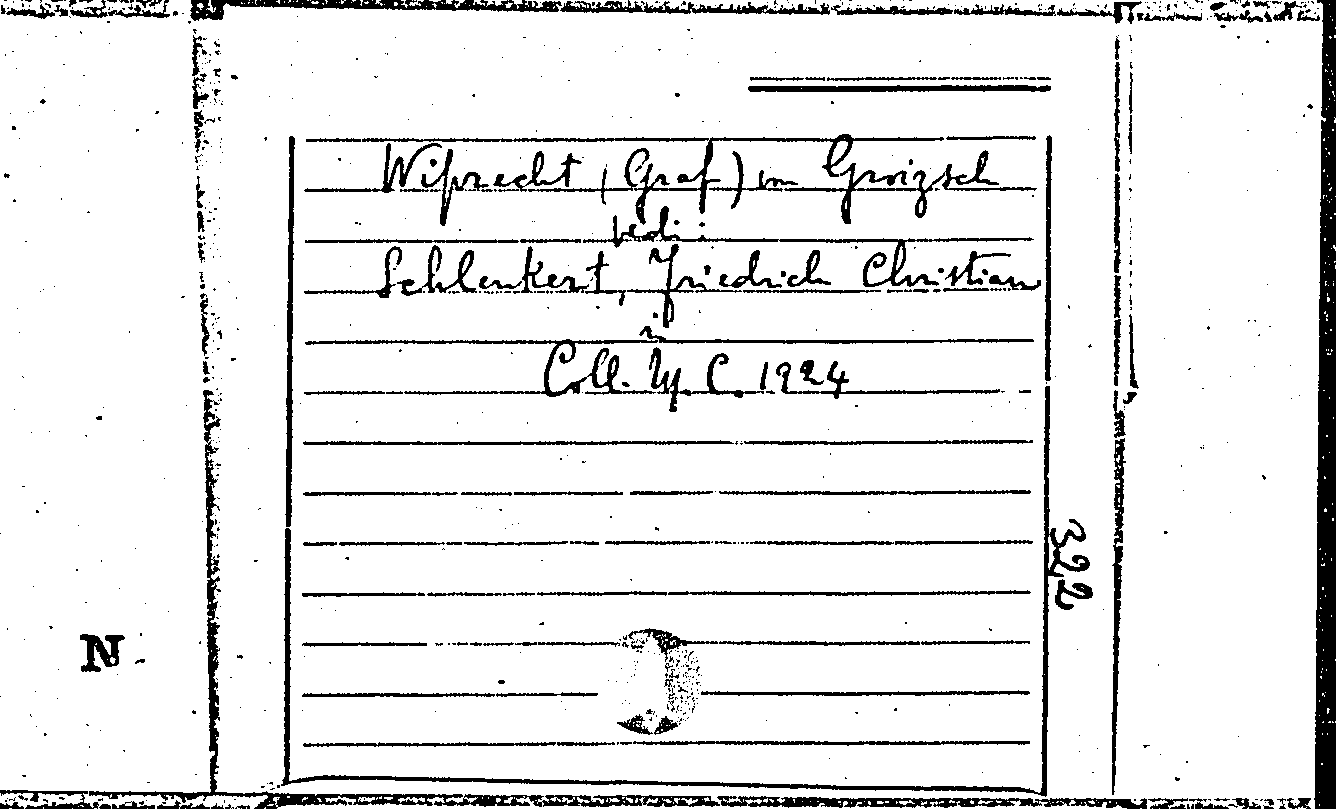 Wiprecht (Graf) von Groizsch
vedi:
Schlenkert, Friedrich Christian
in
Coll. M. C. 1924
322
N